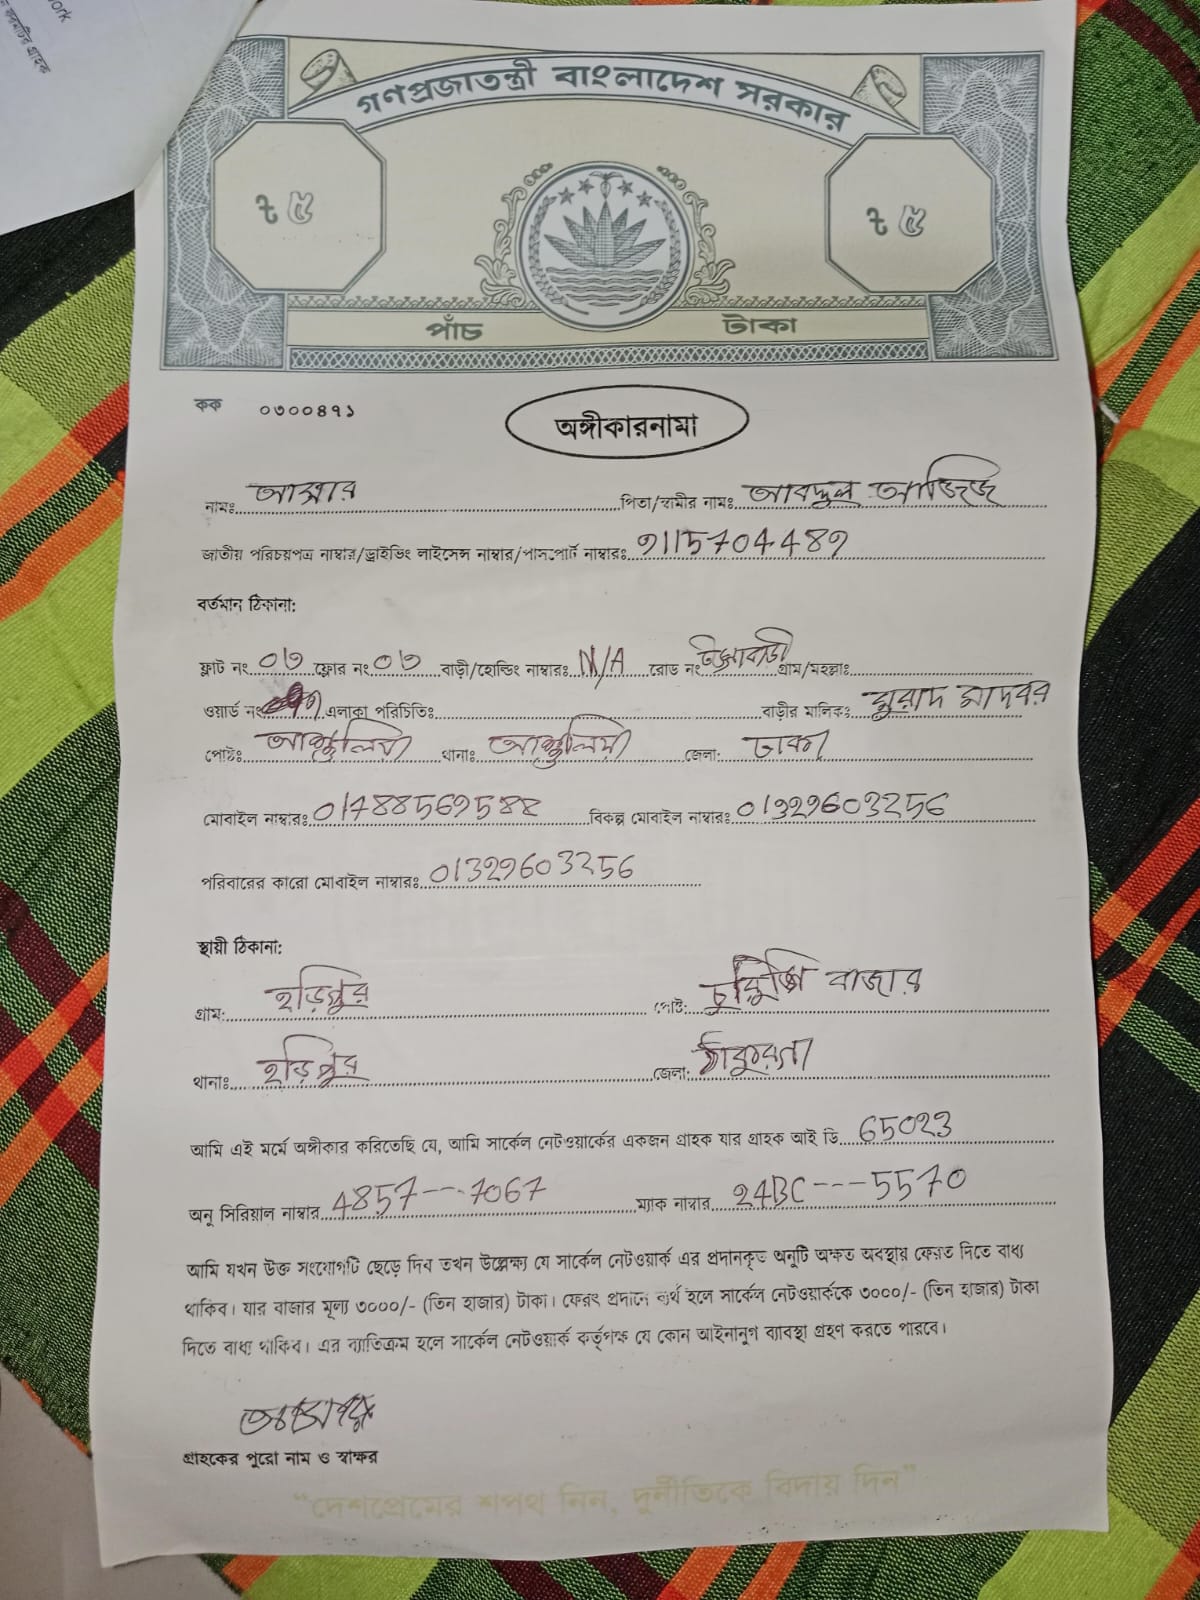 work
গণপ্রজাতন্ত্রী বাংলাদেশ সরকার
ট ৫ ট ৫
পাঁচ টাকা
কক ০৩০০৪৭১
অঙ্গীকারনামা
নামঃ পিতা/স্বামীর নামঃ আবদুল আজিজ
জাতীয় পরিচয়পত্র নাম্বার/ড্রাইভিং লাইসেন্স নাম্বার/পাসপোর্ট নাম্বারঃ 9115704489
বর্তমান ঠিকানা:
ফ্লাট নং ০৩ ফ্লোর নং ০৩ বাড়ী/হোল্ডিং নাম্বারঃ N/A রোড নং গ্রাম/মহল্লাঃ
ওয়ার্ড নং এলাকা পরিচিতিঃ বাড়ীর মালিকঃ মুরাদ মাদবর
পোষ্টঃ আশুলিয়া থানাঃ আশুলিয়া জেলা: ঢাকা
মোবাইল নাম্বারঃ 01788569588 বিকল্প মোবাইল নাম্বারঃ 01329603256
পরিবারের কারো মোবাইল নাম্বারঃ 01329603256
স্থায়ী ঠিকানা:
গ্রাম: হড়িপুর পোষ্ট: বাজার
থানাঃ হড়িপুর জেলা:
আমি এই মর্মে অঙ্গীকার করিতেছি যে, আমি সার্কেল নেটওয়ার্কের একজন গ্রাহক যার গ্রাহক আই ডি 65023
অনু সিরিয়াল নাম্বার 4857---7067 ম্যাক নাম্বার 24BC---5570
আমি যখন উক্ত সংযোগটি ছেড়ে দিব তখন উল্লেক্ষ্য যে সার্কেল নেটওয়ার্ক এর প্রদানকৃত অনুটি অক্ষত অবস্থায় ফেরত দিতে বাধ্য
থাকিব। যার বাজার মূল্য ৩০০০/- (তিন হাজার) টাকা। ফেরৎ প্রদানে ব্যর্থ হলে সার্কেল নেটওয়ার্ককে ৩০০০/- (তিন হাজার) টাকা
দিতে বাধ্য থাকিব। এর ব্যাতিক্রম হলে সার্কেল নেটওয়ার্ক কর্তৃপক্ষ যে কোন আইনানুগ ব্যাবস্থা গ্রহণ করতে পারবে।
গ্রাহকের পুরো নাম ও স্বাক্ষর
"দেশপ্রেমের শপথ নিন, দুর্নীতিকে বিদায় দিন"